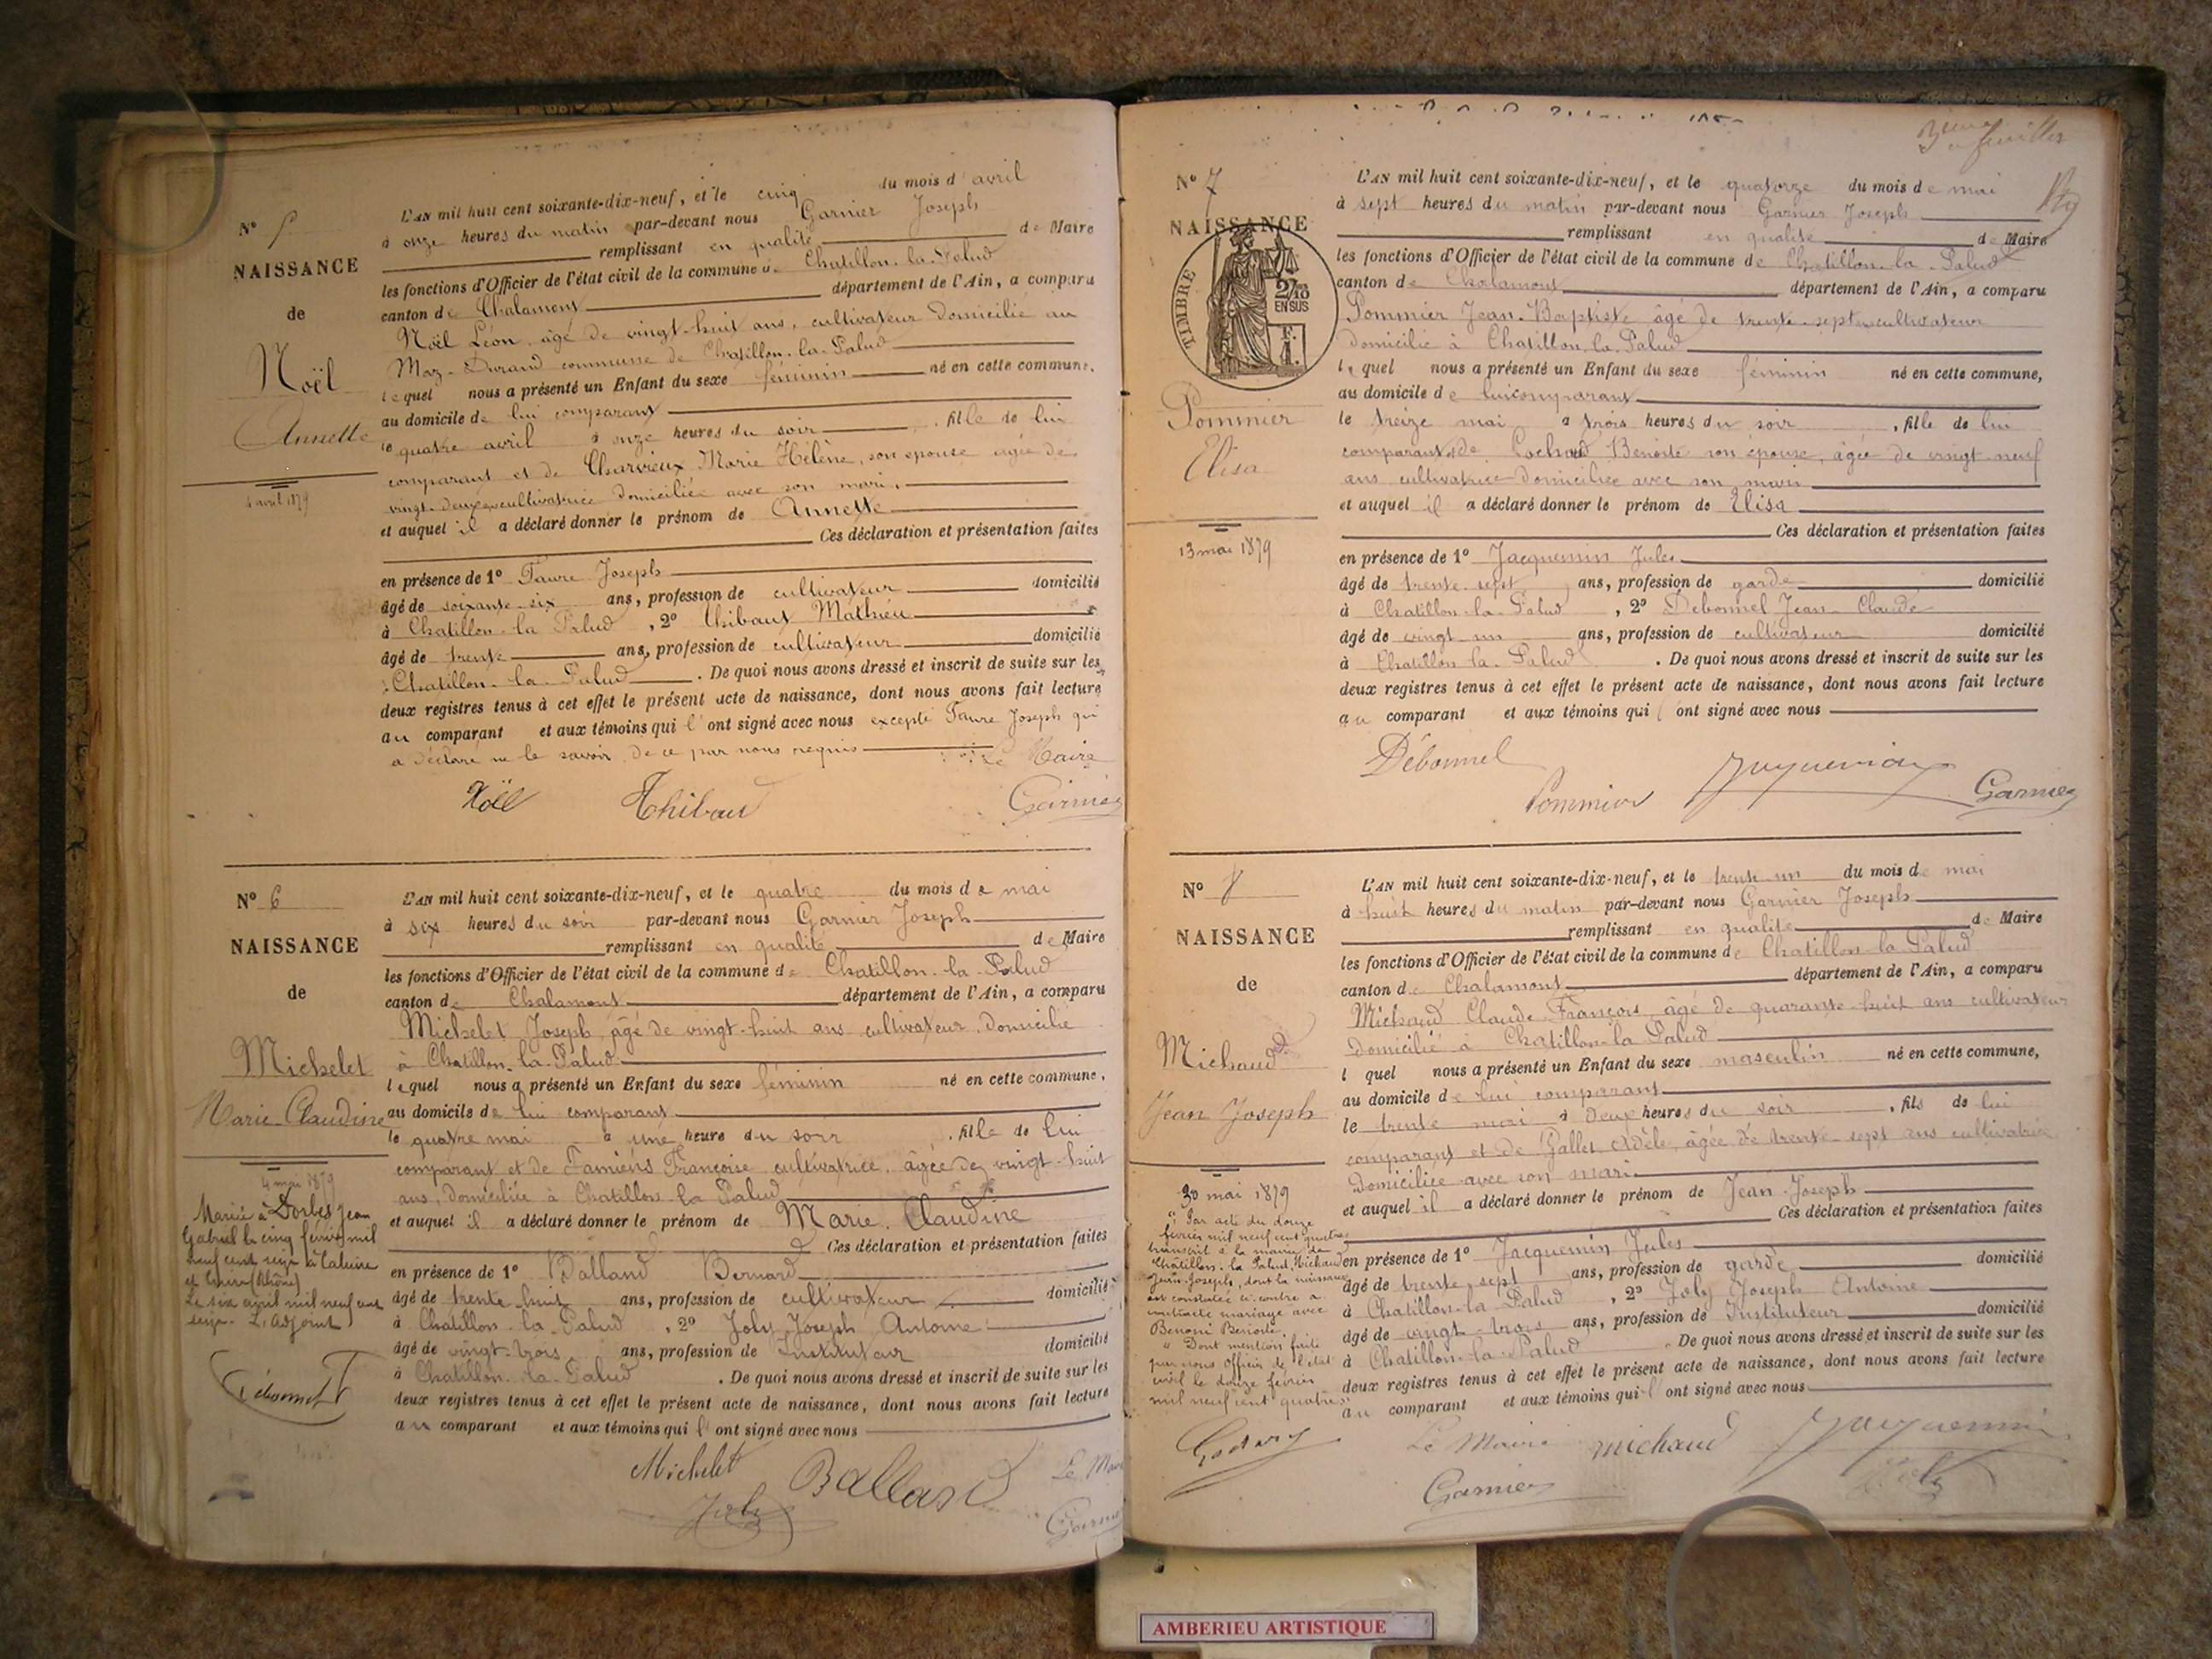 N° 5
NAISSANCE
de
Noël
Annette
4 avril 1879
L'AN mil huit cent soixante-dix-neuf, et le cinq du mois d'avril
à onze heures du matin par-devant nous Garnier Joseph
remplissant en qualité de Maire
les fonctions d'Officier de l'état civil de la commune de Chatillon-la-Palud
canton de Chalamont département de l'Ain, a comparu
Noël Léon, âgé de vingt-huit ans, cultivateur domicilié au
Maz-Durand commune de Chatillon-la-Palud
lequel nous a présenté un Enfant du sexe féminin né en cette commune,
au domicile de lui comparant
le quatre avril à onze heures du soir, fille de lui
comparant et de Charvieux Marie Hélène, son épouse âgée de
vingt-deux cultivatrice domiciliée avec son mari,
et auquel il a déclaré donner le prénom de Annette
Ces déclaration et présentation faites
en présence de 1° Faure Joseph
âgé de soixante-six ans, profession de cultivateur domicilié
à Chatillon-la-Palud, 2° Thibaut Mathieu
âgé de trente ans, profession de cultivateur domicilié
à Chatillon-la-Palud. De quoi nous avons dressé et inscrit de suite sur les
deux registres tenus à cet effet le présent acte de naissance, dont nous avons fait lecture
au comparant et aux témoins qui l'ont signé avec nous excepté Faure Joseph qui
a déclaré ne le savoir de ce par nous requis Le Maire
Noël Thibaut Garnier
N° 6
NAISSANCE
de
Michelet
Marie-Claudine
4 mai 1879
Mariée à Dorbes Jean
Gabriel le cinq février mil
neuf cent seize à Caluire
et Cuire (Rhône)
Le six avril mil neuf cent
seize. L'Adjoint
Débonnel
L'AN mil huit cent soixante-dix-neuf, et le quatre du mois de mai
à six heures du soir par-devant nous Garnier Joseph
remplissant en qualité de Maire
les fonctions d'Officier de l'état civil de la commune de Chatillon-la-Palud
canton de Chalamont département de l'Ain, a comparu
Michelet Joseph, âgé de vingt-huit ans cultivateur, domicilié
à Chatillon-la-Palud
lequel nous a présenté un Enfant du sexe féminin né en cette commune,
au domicile de lui comparant
le quatre mai à une heure du soir, fille de lui
comparant et de Famiens Françoise cultivatrice, âgée de vingt-huit
ans, domiciliée à Chatillon-la-Palud
et auquel il a déclaré donner le prénom de Marie-Claudine
Ces déclaration et présentation faites
en présence de 1° Balland Bernard
âgé de trente-huit ans, profession de cultivateur domicilié
à Chatillon-la-Palud, 2° Joly Joseph Antoine
âgé de vingt-trois ans, profession de Instituteur domicilié
à Chatillon-la-Palud. De quoi nous avons dressé et inscrit de suite sur les
deux registres tenus à cet effet le présent acte de naissance, dont nous avons fait lecture
au comparant et aux témoins qui l'ont signé avec nous
Michelet Balland Le Maire
Joly Garnier
3eme feuillet
N° 7
NAISSANCE
TIMBRE
2/10
EN SUS
F.
1.
Pommier
Elisa
13 mai 1879
L'AN mil huit cent soixante-dix-neuf, et le quatorze du mois de mai
à sept heures du matin par-devant nous Garnier Joseph
remplissant en qualité de Maire
les fonctions d'Officier de l'état civil de la commune de Chatillon-la-Palud
canton de Chalamont département de l'Ain, a comparu
Pommier Jean-Baptiste âgé de trente-sept ans cultivateur
domicilié à Chatillon-la-Palud
lequel nous a présenté un Enfant du sexe féminin né en cette commune,
au domicile de lui comparant
le treize mai à trois heures du soir, fille de lui
comparant et de Benoite son épouse, âgée de vingt-neuf
ans cultivatrice domiciliée avec son mari
et auquel il a déclaré donner le prénom de Elisa
Ces déclaration et présentation faites
en présence de 1° Jacquemin Jules
âgé de trente-sept ans, profession de garde domicilié
à Chatillon-la-Palud, 2° Débonnel Jean-Claude
âgé de vingt-un ans, profession de cultivateur domicilié
à Chatillon-la-Palud. De quoi nous avons dressé et inscrit de suite sur les
deux registres tenus à cet effet le présent acte de naissance, dont nous avons fait lecture
au comparant et aux témoins qui l'ont signé avec nous
Débonnel Pommier Jacquemin Garnier
N° 8
NAISSANCE
de
Michaud
Jean Joseph
30 mai 1879
"Par acte du douze
février mil neuf cent quatre
transcrit à la mairie de
Châtillon-la-Palud, Michaud
Jean-Joseph, dont la naissance
est constatée ci-contre a
contracté mariage avec
Benoni Benoite.
" Dont mention faite
par nous officier de l'état
civil le douze février
mil neuf cent quatre.
L'AN mil huit cent soixante-dix-neuf, et le trente-un du mois de mai
à huit heures du matin par-devant nous Garnier Joseph
remplissant en qualité de Maire
les fonctions d'Officier de l'état civil de la commune de Chatillon-la-Palud
canton de Chalamont département de l'Ain, a comparu
Michaud Claude François, âgé de quarante-huit ans cultivateur
domicilié à Chatillon-la-Palud
l quel nous a présenté un Enfant du sexe masculin né en cette commune,
au domicile de lui comparant
le trente mai à deux heures du soir, fils de lui
comparant et de Gallet Adèle, âgée de trente-sept ans cultivatrice
domiciliée avec son mari
et auquel il a déclaré donner le prénom de Jean-Joseph
Ces déclaration et présentation faites
en présence de 1° Jacquemin Jules
âgé de trente-sept ans, profession de garde domicilié
à Chatillon-la-Palud, 2° Joly Joseph Antoine
âgé de vingt-trois ans, profession de Instituteur domicilié
à Chatillon-la-Palud. De quoi nous avons dressé et inscrit de suite sur les
deux registres tenus à cet effet le présent acte de naissance, dont nous avons fait lecture
au comparant et aux témoins qui l'ont signé avec nous
Le Maire michaud Jacquemin
Garnier Joly
AMBERIEU ARTISTIQUE